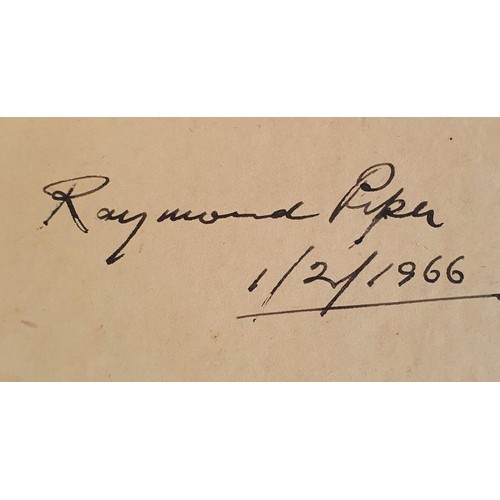 Raymond Piper
1/2/1966